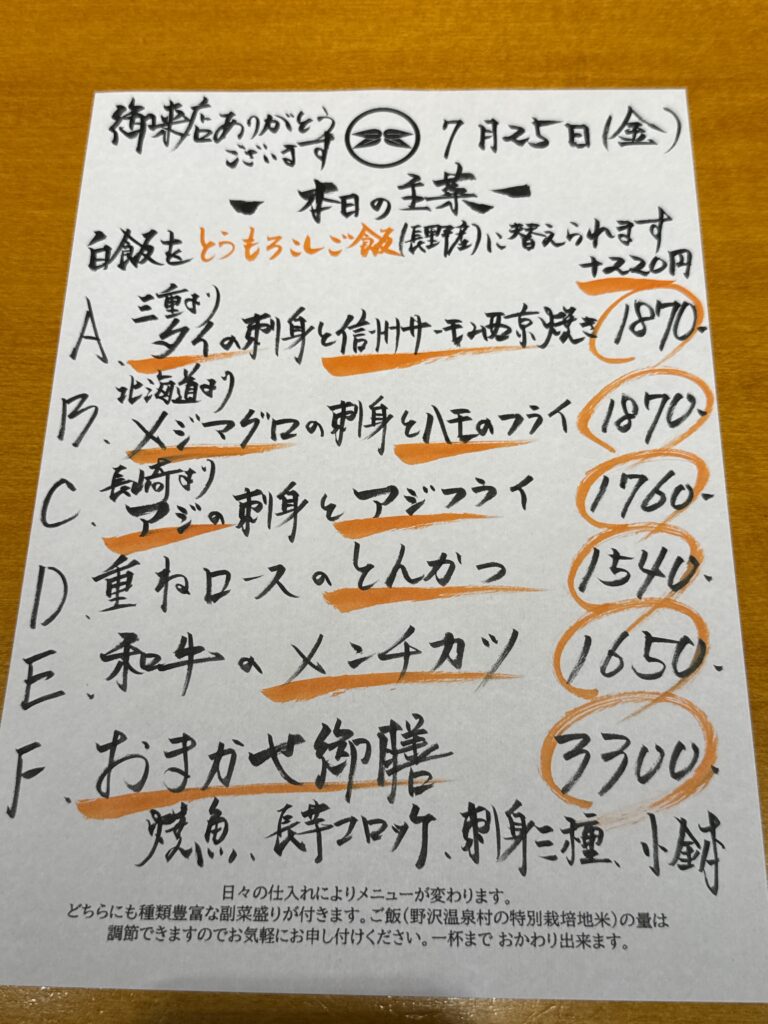 御来店ありがとう
ございます
7月25日(金)
ー 本日の主菜 ー
白飯をとうもろこしご飯(長野産)に替えられます
+220円
三重より
A、タイの刺身と信州サーモン西京焼き 1870-
北海道より
B、メジマグロの刺身とハモのフライ 1870-
長崎より
C、アジの刺身とアジフライ 1760-
D、重ねロースのとんかつ 1540-
E、和牛のメンチカツ 1650-
F、おまかせ御膳 3300-
焼魚、長芋コロッケ、刺身三種、小鉢
日々の仕入れによりメニューが変わります。
どちらにも種類豊富な副菜盛りが付きます。ご飯(野沢温泉村の特別栽培地米)の量は
調節できますのでお気軽にお申し付けください。一杯まで おかわり出来ます。